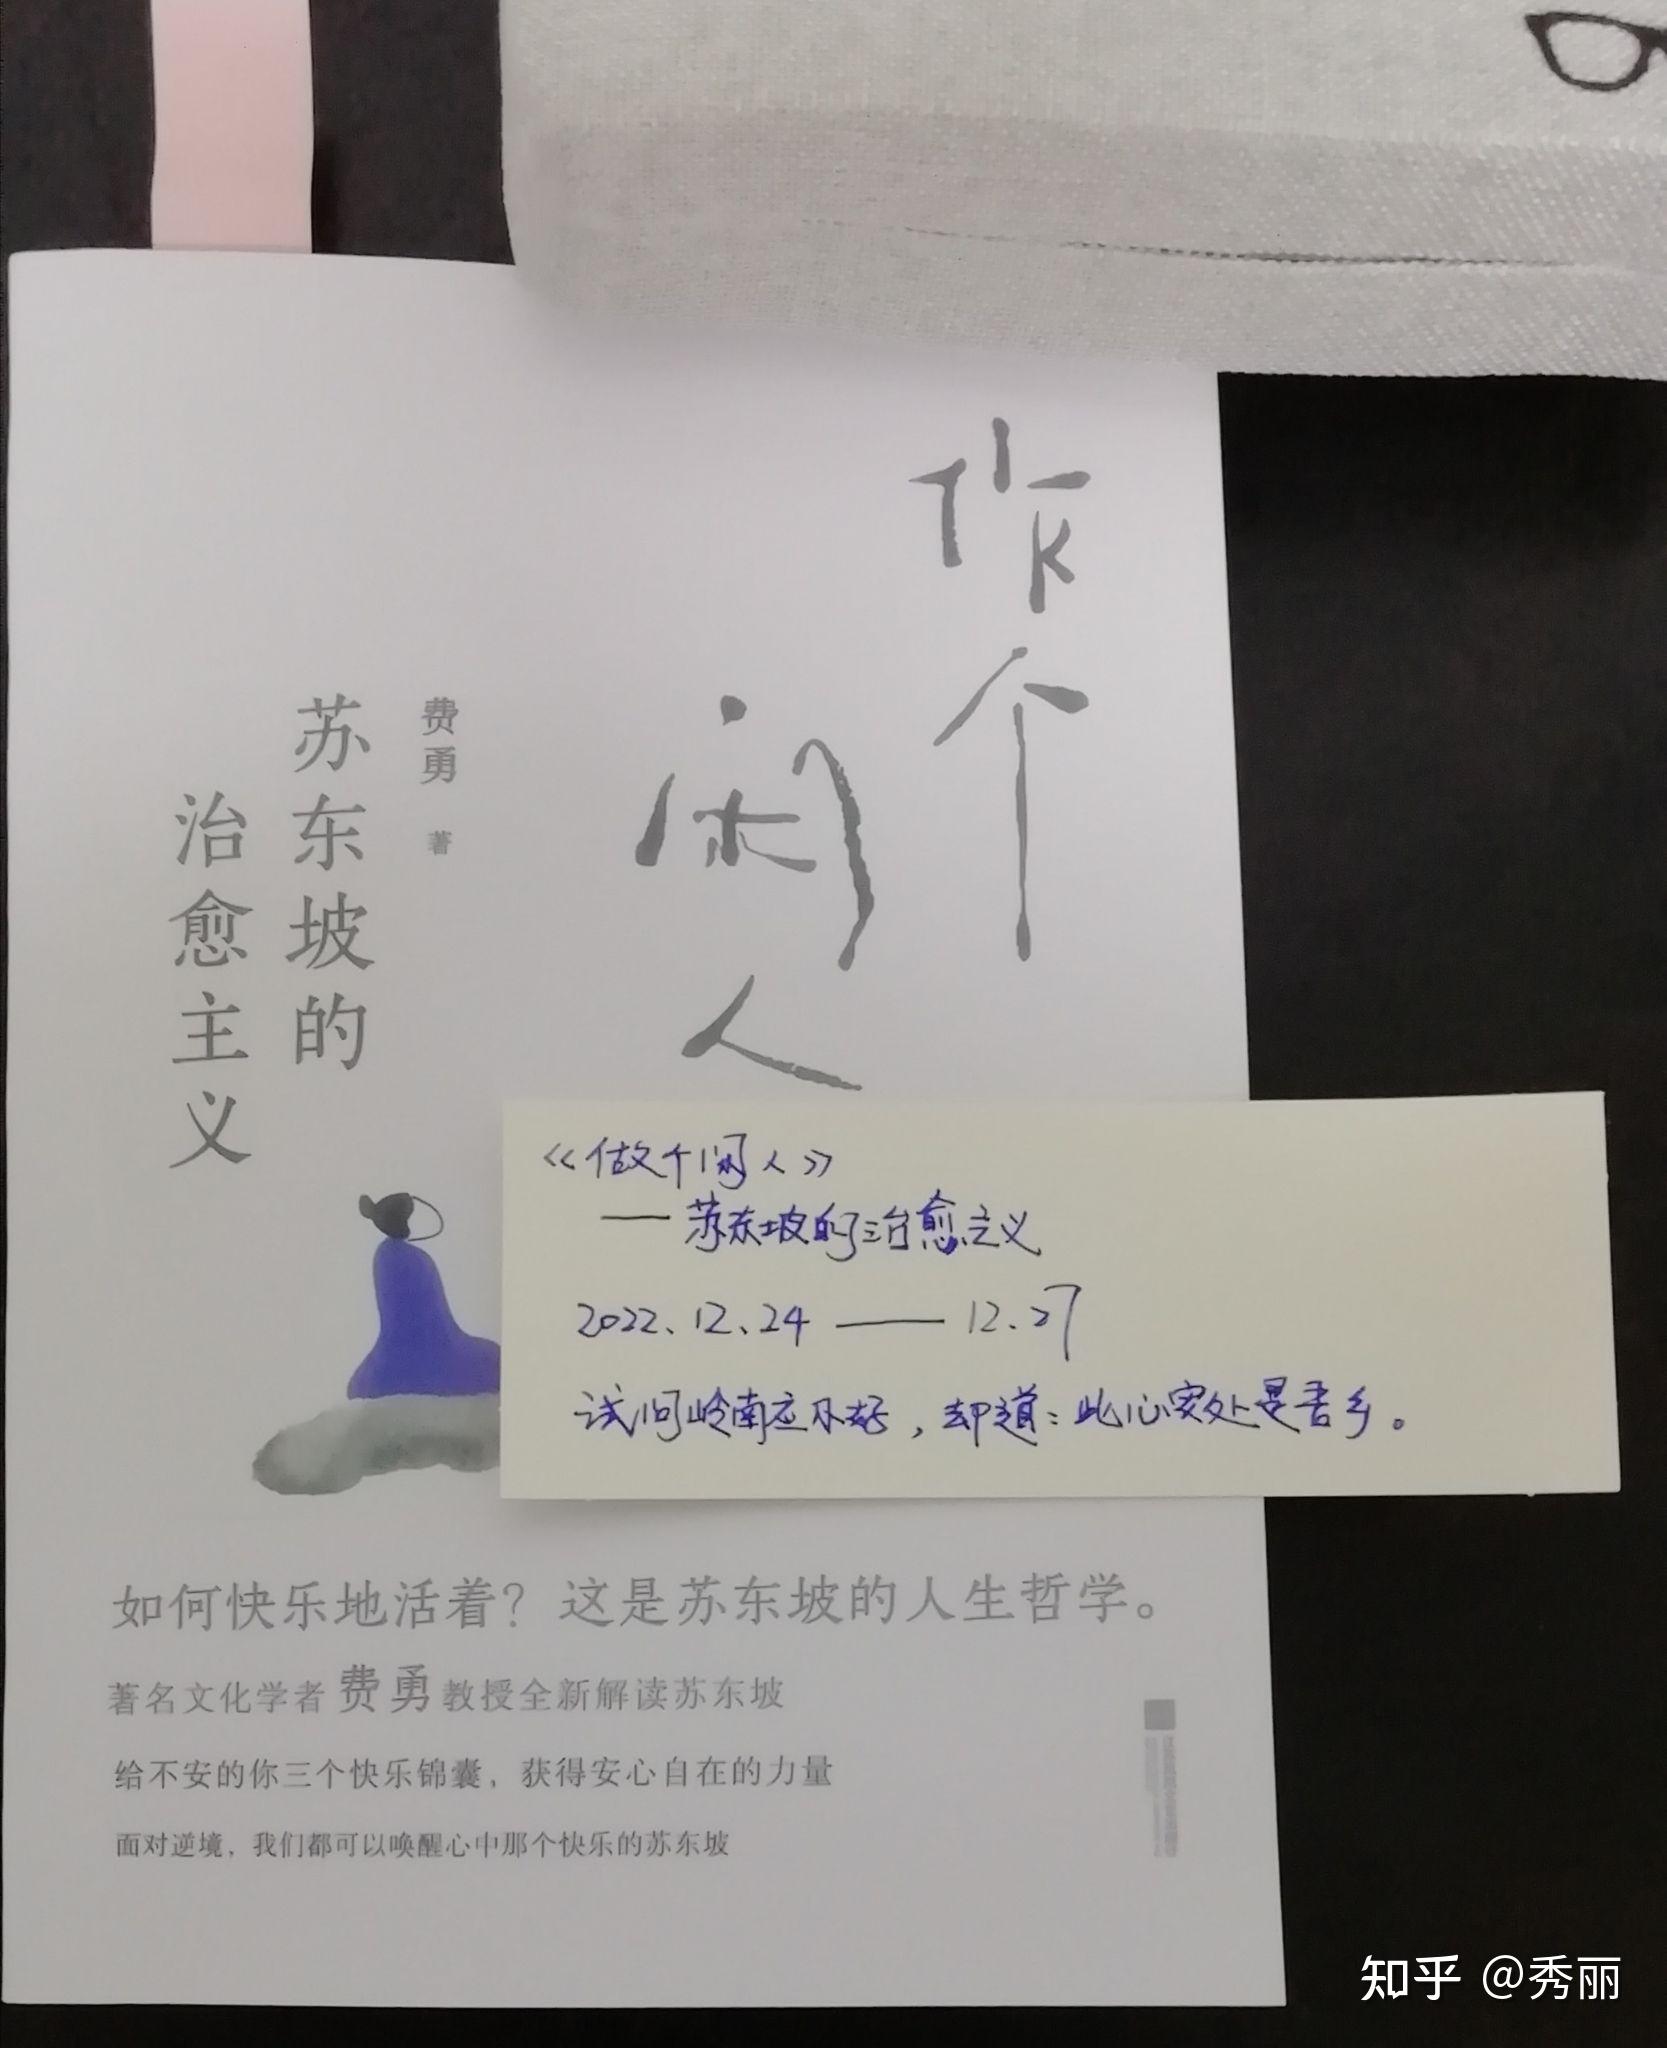 作个
闲人
费勇 著
苏东坡的
治愈主义
《做个闲人》
——苏东坡的治愈主义
2022.12.24——12.27
试问岭南应不好，却道：此心安处是吾乡。
如何快乐地活着？这是苏东坡的人生哲学。
著名文化学者费勇教授全新解读苏东坡
给不安的你三个快乐锦囊，获得安心自在的力量
面对逆境，我们都可以唤醒心中那个快乐的苏东坡
知乎 @秀丽